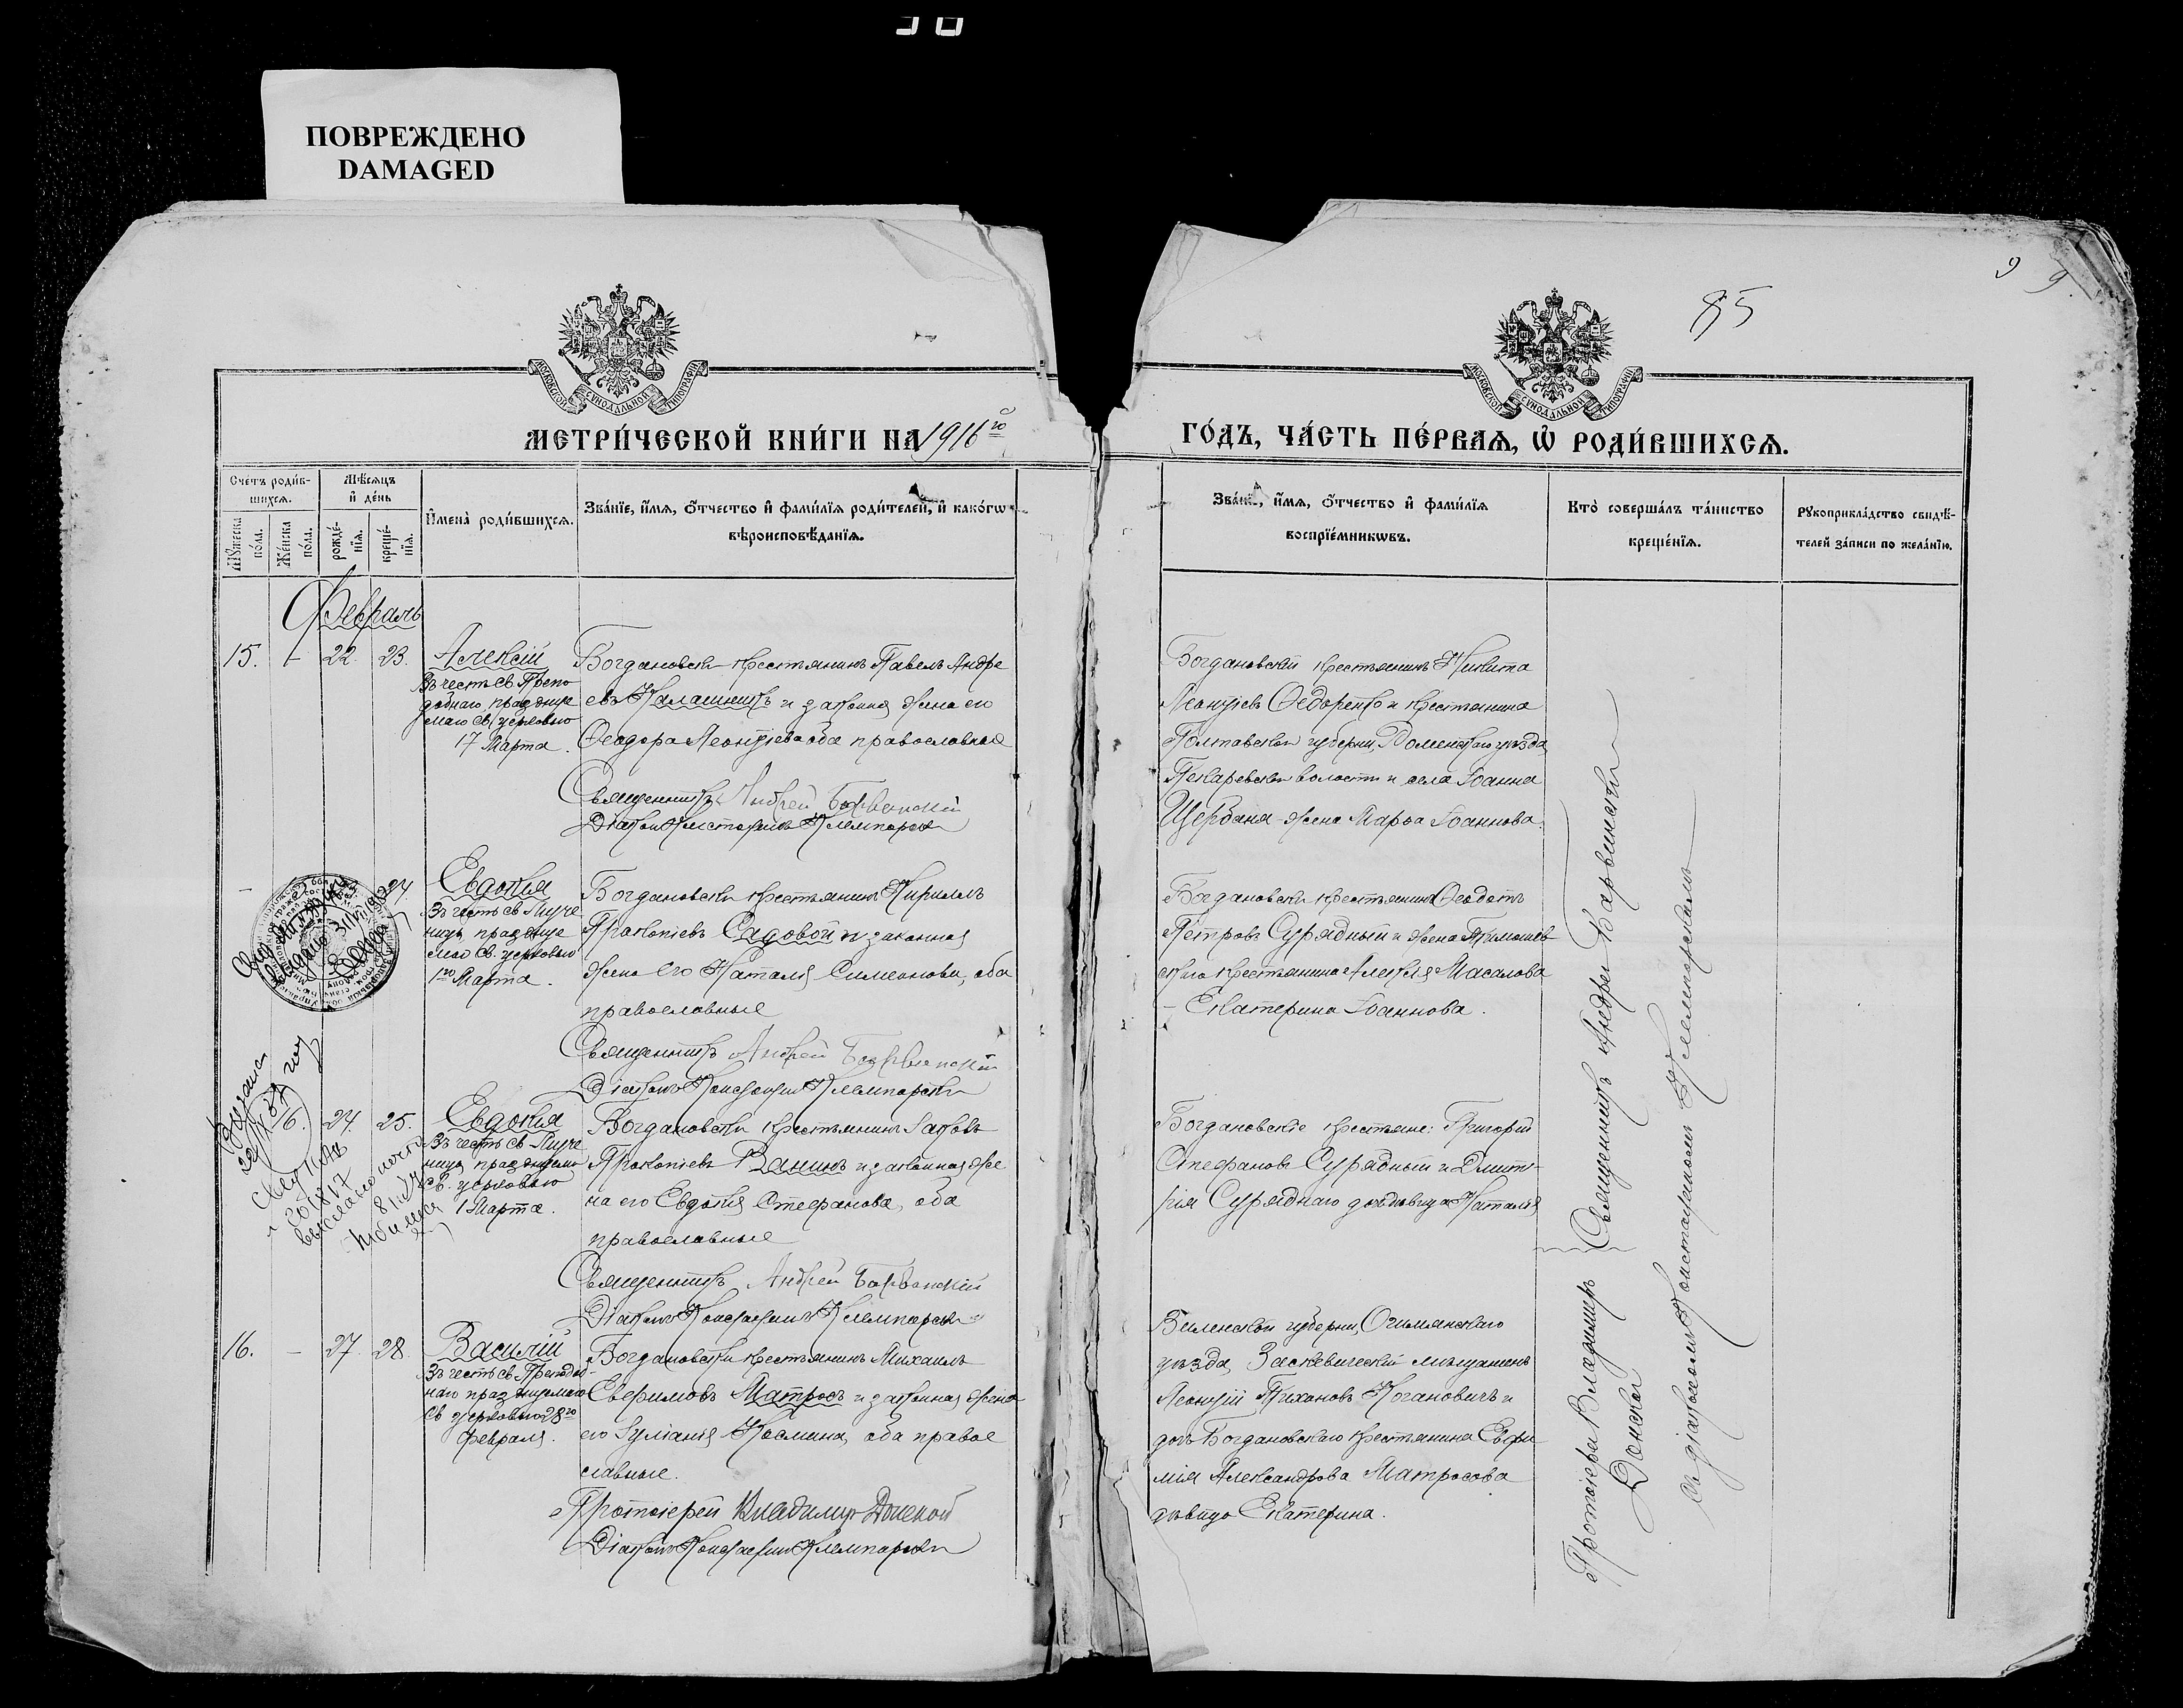 ПОВРЕЖДЕНО
DAMAGED
85
9 9
МОСКОВСКОЙ СѴНОДАЛЬНОЙ ТИПОГРАФІИ
МОСКОВСКОЙ СѴНОДАЛЬНОЙ ТИПОГРАФІИ
МЕТРИ́ЧЕСКОЙ КНИ́ГИ НА 1916 го
ГО́ДЪ, ЧА́СТЬ ПЕ́РВАѦ, Ѡ҆ РОДИ́ВШИХСѦ.
Сче́тъ роди́в-
шихсѧ.
Мѣ́сѧцъ
и҆ де́нь
Мꙋ́жеска
по́ла.
Же́нска
по́ла.
рожде́-
нїѧ.
креще́-
нїѧ.
И҆мена̀ роди́вшихсѧ.
Зва́нїе, и҆́мѧ, ѻ҆́тчество и҆ фами́лїѧ роди́телей, и҆ како́гѡ
вѣроисповѣ́данїѧ.
Зва́нїе, и҆́мѧ, ѻ҆́тчество и҆ фами́лїѧ
воспрїе́мникѡвъ.
Кто̀ соверша́лъ та́инство
креще́нїѧ.
Рꙋкоприкла́дство свидѣ́-
телей за́писи по жела́нїю.
Февраль
15. - 22. 23. Алексій
Въ честь св. Препо
добнаго, празднуе
маго св. церковью
17 Марта.
Богдановскій крестьянинъ Павелъ Андре
евъ Калашникъ и законная жена его
Ѳеодора Леонтіева, оба православные
Священникъ Андрей Барвинскій
Діаконъ Константинъ Клемпарскій
Богдановскій крестьянинъ Никита
Леонтіевъ Ѳедоренко и крестьянина
Полтавской губерніи, Роменскаго уѣзда
Пекаревской волости и села Іоанна
Щербаня жена Марѳа Іоаннова.
- 24. Евдокія
Въ честь св. Муче
ницы, празднуе
мой св. церковью
1го Марта.
Богдановскій крестьянинъ Кириллъ
Прокопіевъ Садовой и законная
жена его Наталія Симеонова, оба
православные
Священникъ Андрей Барвинскій
Діаконъ Константинъ Клемпарскій
Богдановскій крестьянинъ Ѳеодотъ
Петровъ Сурядный и жена Тимошев
скаго крестьянина Алексія Масалова
- Екатерина Іоаннова.
16. 24. 25. Евдокія
Въ честь св. Муче
ницы, празднуемой
св. церковью
1 Марта.
Богдановскій крестьянинъ Іаковъ
Прокопіевъ Ванинъ и законная же
на его Евдокія Стефанова, оба
православные
Священникъ Андрей Барвинскій
Діаконъ Константинъ Клемпарскій
Богдановскіе крестьяне: Григорій
Стефановъ Сурядный и Дмит-
рія Суряднаго дочь дѣвица Наталія
16. - 27. 28. Василій
Въ честь св. Преподоб-
наго празднуемаго
св. церковью 28го
февраля.
Богдановскій крестьянинъ Михаилъ
Евфимовъ Матросъ и законная жена
его Іуліанія Космина, оба право
славные.
Протоіерей Владимиръ Донской
Діаконъ Константинъ Клемпарскій
Виленской губерніи, Ошмянскаго
уѣзда, Заскевическій мѣщанинъ
Леонтій Тихоновъ Коганович и
дочь Богдановскаго крестьянина Евфи
мія Александрова Матросова
дѣвица Екатерина.
Протоіерей Владимиръ
Донской
Священникъ Андрей Барвинскій
съ діакономъ Константиномъ Клемпарскимъ